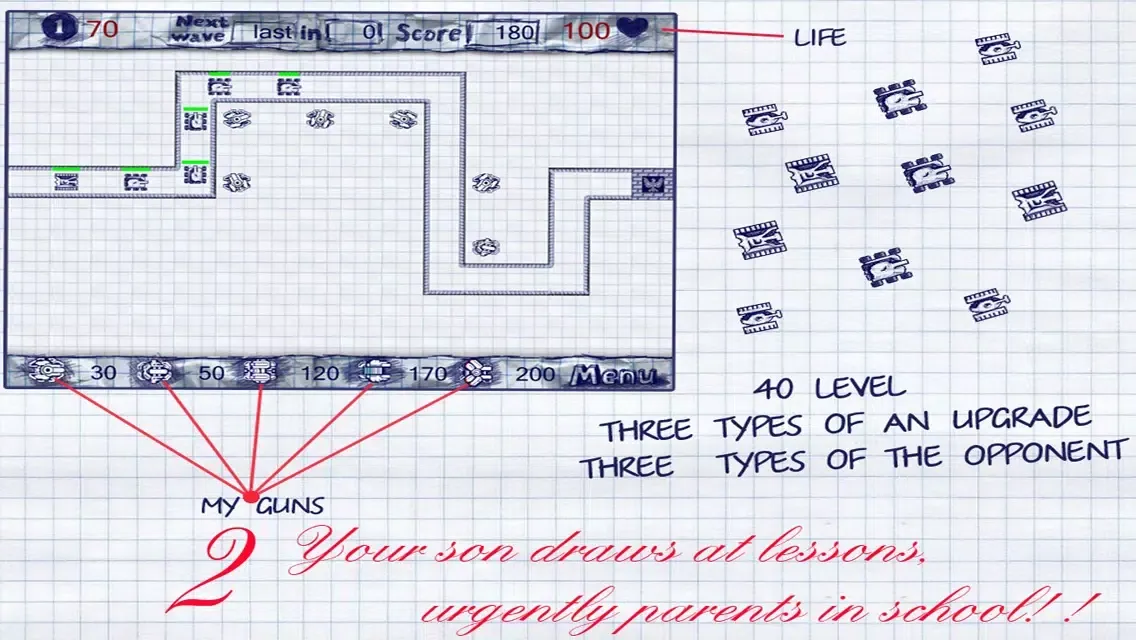 1 70 Next wave last in 0 Score 180 100
LIFE
30 50 120 170 200 Menu
40 LEVEL
THREE TYPES OF AN UPGRADE
THREE TYPES OF THE OPPONENT
MY GUNS
2 Your son draws at lessons,
urgently parents in school! !